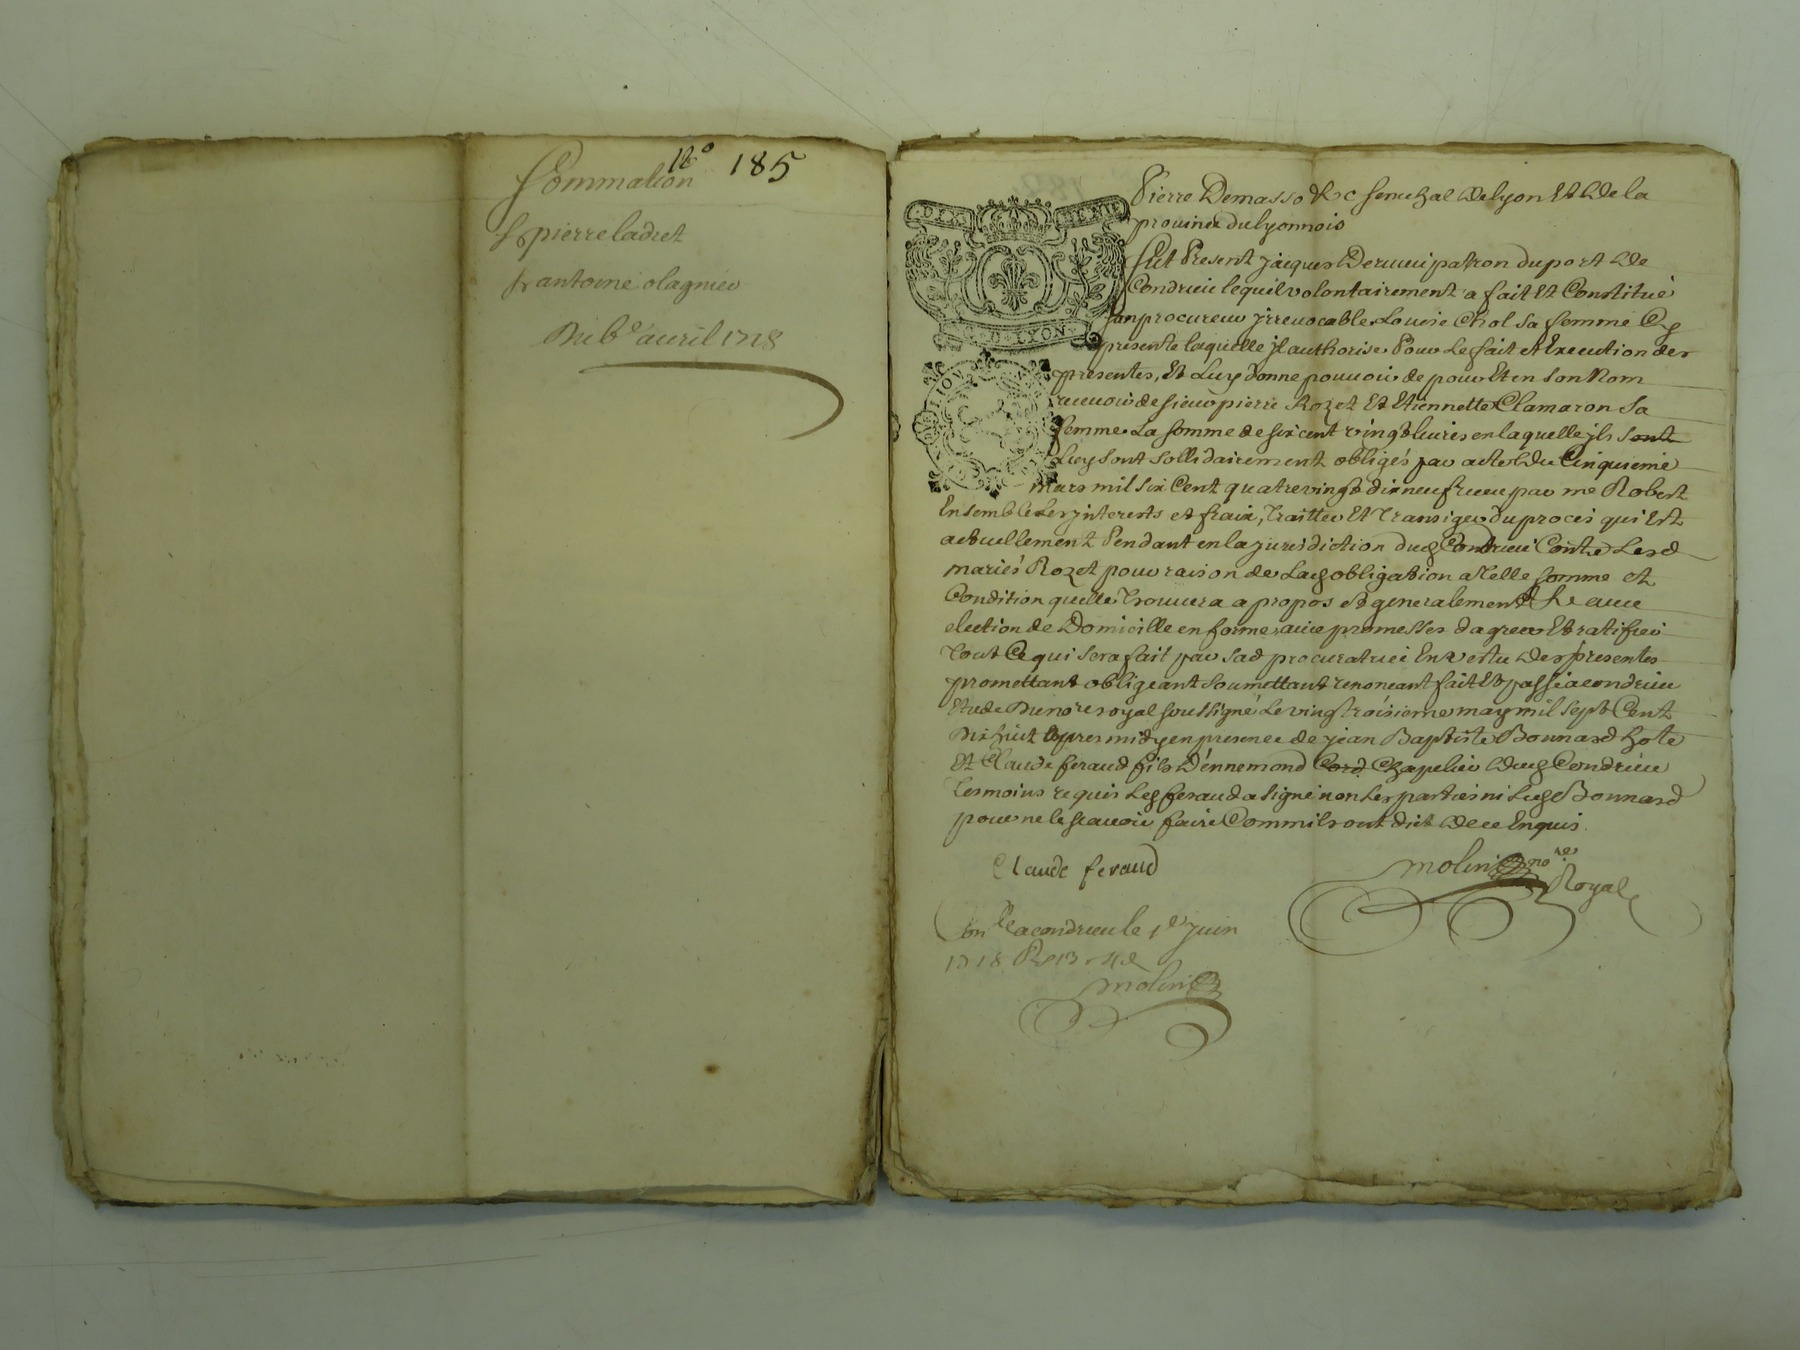 N.º 185
Sommation
Sr pierre laduet
Sr antoine olagnier
Du 6e avril 1718
Pierre Demasso &c senechal de lyon Et de la
province du lyonnois
DIX DENIE
LYON
Fut Present jacques Dervieu patron du port de
Condrieu lequel volontairement a fait Et Constitué
son procureur jrrevocable Louise Chol sa femme Cy
presente laquelle jl authorise Pour Le fait et Execution des
presentes, Et Luy donne pouvoir de pour Et en son Nom
recevoir de sieur pierre Rozet Et Etiennette Clamaron sa
femme La somme de six cent vingt livres en laquelle jls sont
Luy sont sollidairement obligés par acte du Cinquieme
mars mil six Cent quatre vingt dix neuf receu par me Robert
Ensemble Les jnterests et fraix, Traitter Et Transiger du procès qui Est
actuellement Pendant en la jurisdiction dud Condrieu Contre Lesd
mariés Rozet pour raison de Lad obligation a Telle somme et
Condition quelle Trouvera a propos et generalement &c avec
election de Domicille en forme avec promesses dagreer Et ratifier
Tout Ce qui sera fait par sad procuratrice En vertu des presentes
promettant obligeant soumettant renonceant fait Et passé a condrieu
Etude Du nore royal soussigné Le vingt troisieme may mil sept Cent
Dix huit apres midy en presence de jean Baptiste Bonnard hote
Et Claude feraud fils D'ennemond Cord Chapelier dud Condrieu
Tesmoins requis Led feraud a signé non Les parties ni Led Bonnard
pour ne le scavoir faire Comm ils ont dit de ce Enquis
Claude feraud
molin nore
Royal
Conlle a condrieu le 1er juin
1718
molin